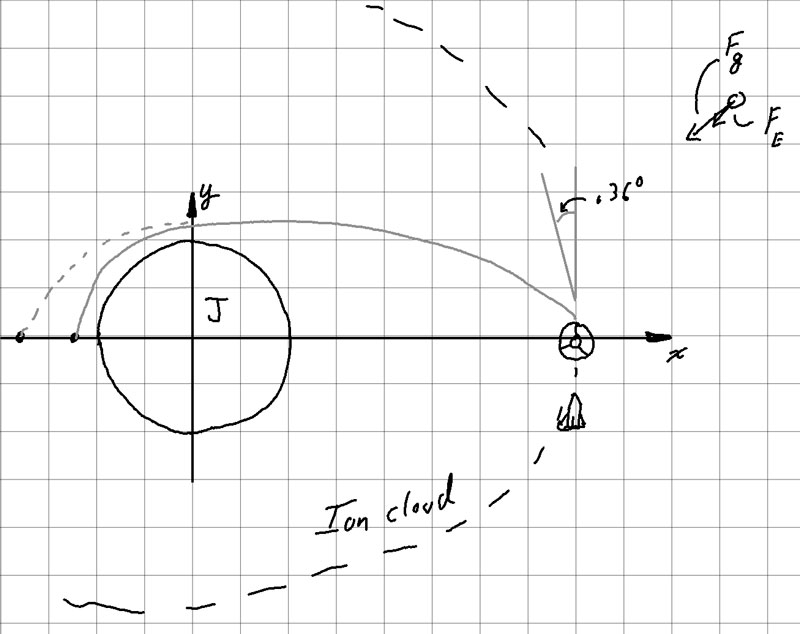 F_g
F_E
.36°
y
J
x
Ion cloud